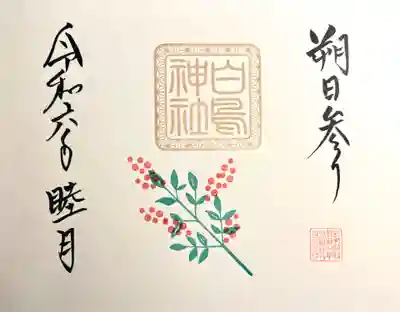 朔日参り
白鳥
神社
令和六年睦月